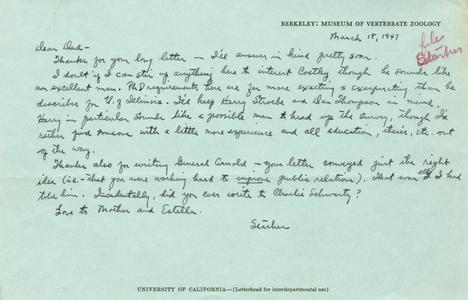 BERKELEY: MUSEUM OF VERTEBRATE ZOOLOGY
March 18, 1947
file
Starker
Dear Dad-
Thanks for your long letter - I'll answer in kind pretty soon.
I doubt if I can stir up anything here to interest Costley, though he sounds like
an excellent man. PhD requirements here are far more exacting & exasperating than he
describes for U. of Illinois. I'd keep Harry Stroebe and Dan Thompson in mind.
Harry in particular sounds like a possible man to head up the survey, though I'd
rather find someone with a little more experience and all education, thesis, etc. out
of the way.
Thanks also for writing General Arnold - your letter conveyed just the right
idea (i.e. - that you were working hard to improve public relations). That was all I had
told him. Incidentally, did you ever write to Charlie Schwartz?
Love to Mother and Estella.
Starker
UNIVERSITY OF CALIFORNIA-(Letterhead for interdepartmental use)